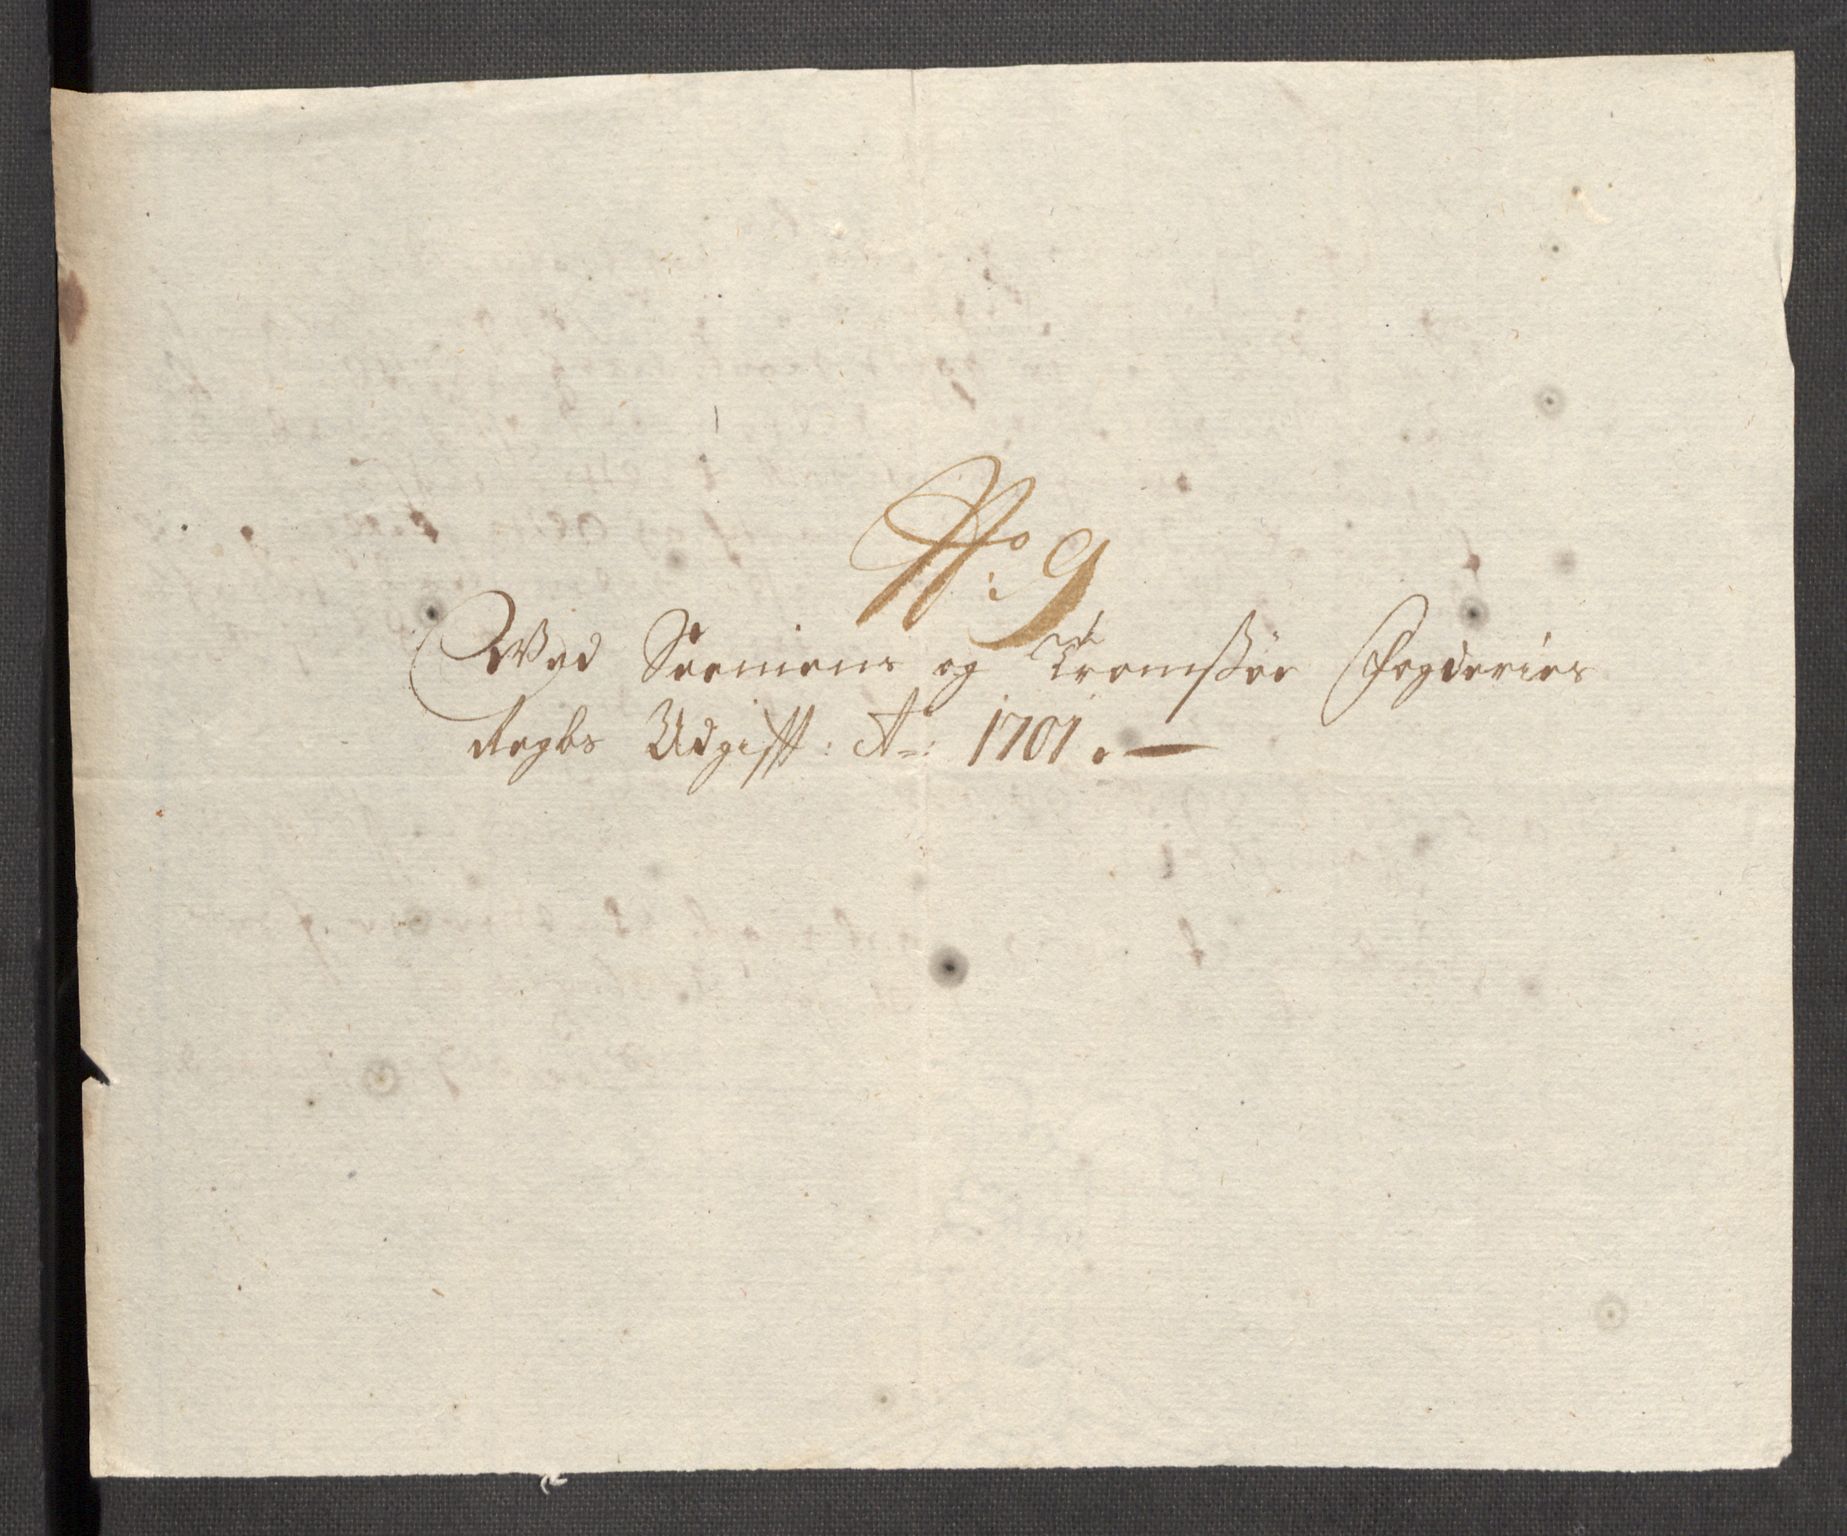 No: 9
Wed Seeniens og Tromsøe Fogderies
Regbs Udgifft: Ao: 1701.